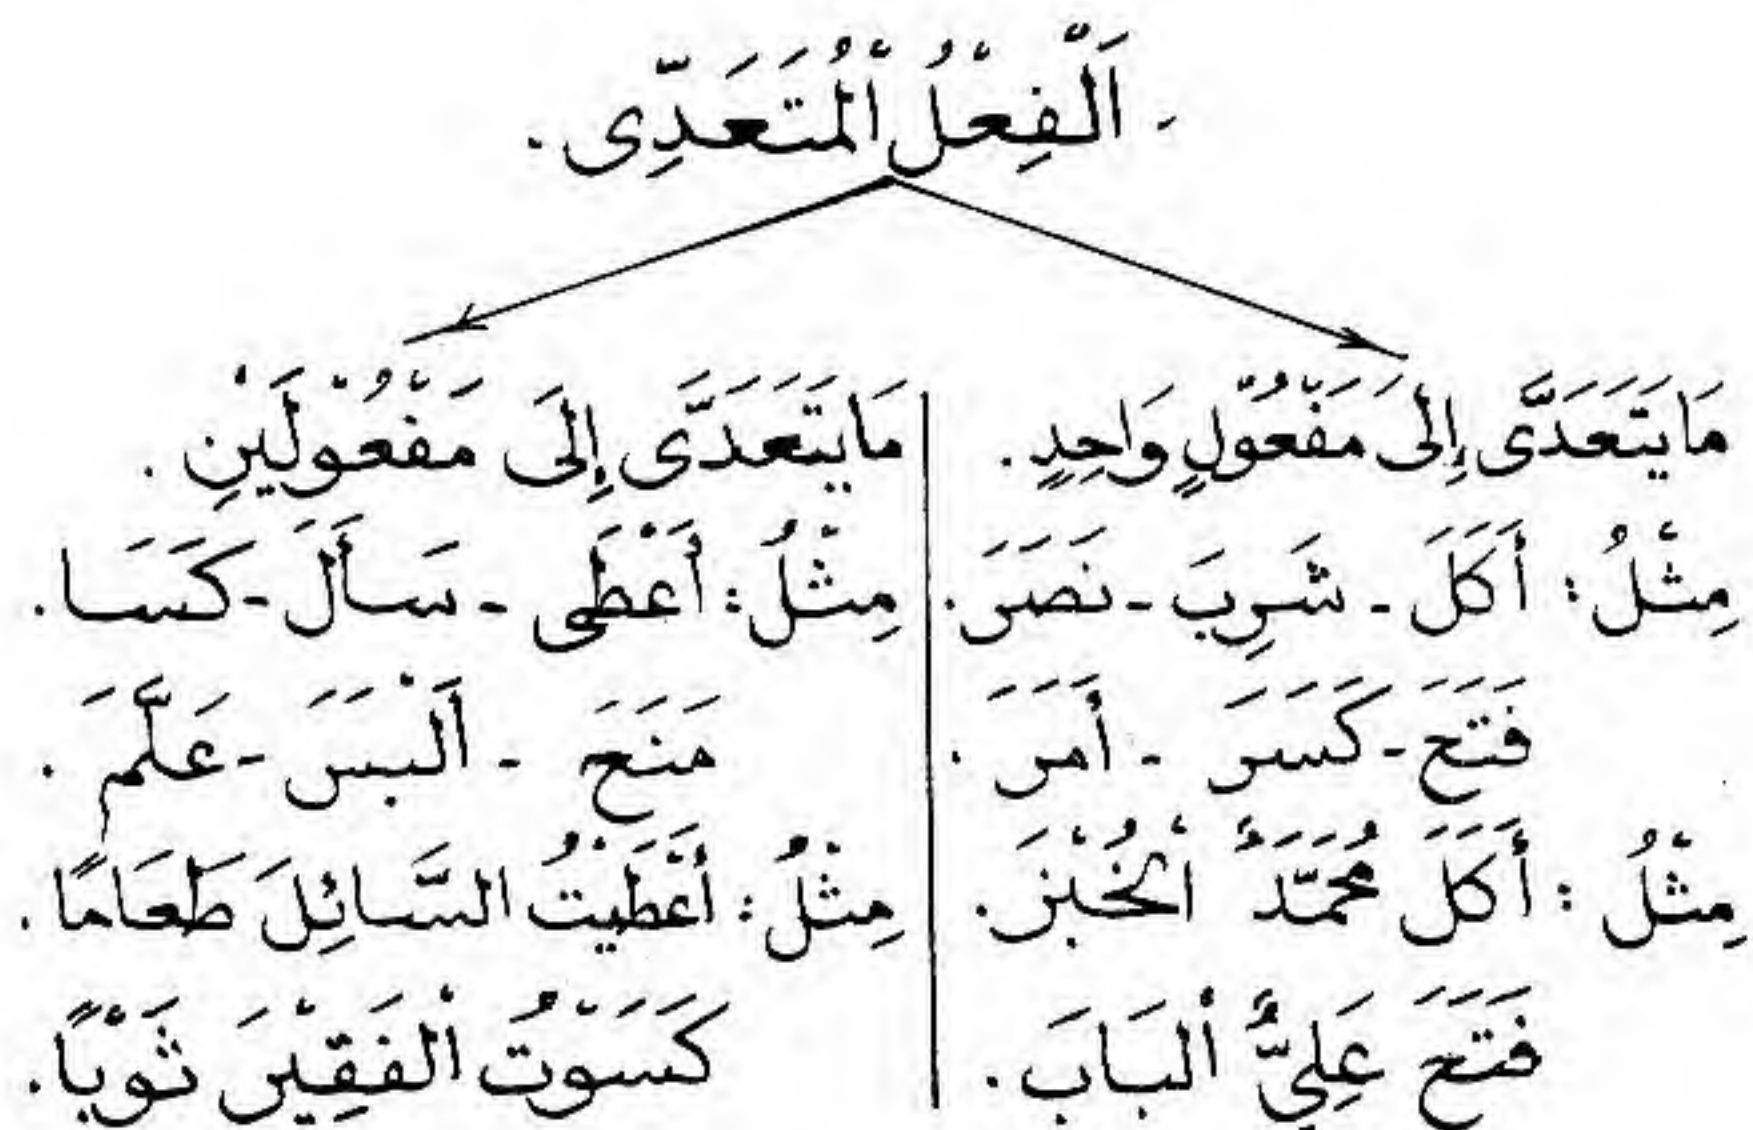 - اَلْفِعْلُ اْلمُتَعَدِّى .
مَا يَتَعَدَّى إِلَى مَفْعُوْلٍ وَاحِدٍ .
مِثْلُ : أَكَلَ - شَرِبَ - نَصَرَ .
فَتَحَ - كَسَرَ - أَمَرَ .
مِثْلُ : أَكَلَ مُحَمَّدٌ اْلخُبْزَ .
فَتَحَ عَلِيٌّ اْلبَابَ .
مَا يَتَعَدَّى إِلَى مَفْعُوْلَيْنِ .
مِثْلُ : أَعْطَى - سَأَلَ - كَسَا .
مَنَحَ - اَلْبَسَ - عَلَّمَ .
مِثْلُ : أَعْطَيْتُ السَّائِلَ طَعَامًا .
كَسَوْتُ اْلفَقِيْرَ ثَوْبًا .